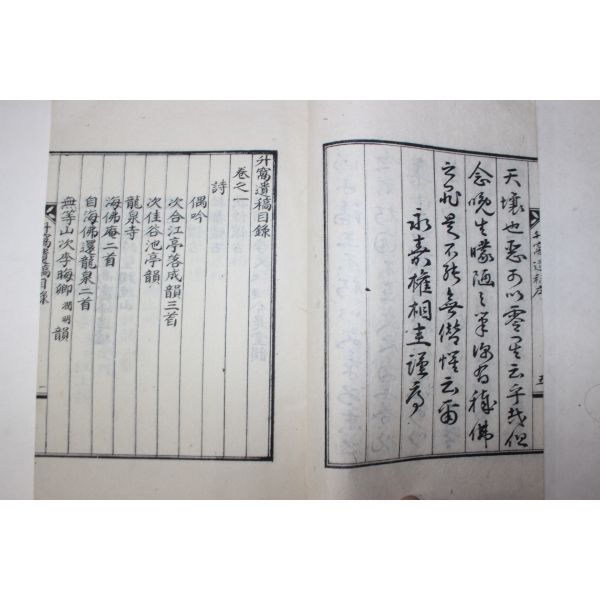 天壤也惡可以零星云乎哉但
念晩生矇陋之筆深有穢佛
之非是不能無僭愧云爾
永嘉權相圭謹序
升窩遺稿序
五
升窩遺稿目錄
卷之一
詩
偶吟
次合江亭落成韻三首
次佳谷池亭韻
龍泉寺
海佛庵二首
自海佛還龍泉二首
無等山次李晦卿淵明韻
升窩遺稿目錄
一